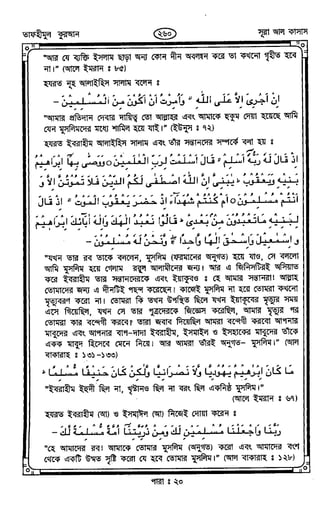 তাফহীমুল কুরআন
২৬০
সূরা আল কাসাস
"আর যে ব্যক্তি ইসলাম ছাড়া অন্য কোন দীন অবলম্বন করে তা কখনো গৃহীত হবে
না।" (আলে ইমরান : ৮৫)
হযরত নূহ আলাইহিস সালাম বলেন :
اِنْ اَجْرِىَ اِلَّا عَلَى اللهِ وَاُمِرْتُ اَنْ اَكُوْنَ مِنَ الْمُسْلِمِيْنَ -
"আমার প্রতিদান দেবার দায়িত্ব তো আল্লাহর এবং আমাকে হুকুম দেয়া হয়েছে আমি
যেন মুসলিমদের মধ্যে শামিল হয়ে যাই।" (ইউনুস : ৭২)
হযরত ইবরাহীম আলাইহিস সালাম এবং তাঁর সন্তানদের সম্পর্কে বলা হয় :
اِذْ قَالَ لَهُ رَبُّهُ اَسْلِمْ قَالَ اَسْلَمْتُ لِرَبِّ الْعٰلَمِيْنَ ○ وَوَصّٰى بِهَا اِبْرٰهِيْمُ
بَنِيْهِ وَيَعْقُوْبُ يٰبَنِىَّ اِنَّ اللهَ اصْطَفٰى لَكُمُ الدِّيْنَ فَلَا تَمُوْتُنَّ اِلَّا وَ
اَنْتُمْ مُّسْلِمُوْنَ ○ اَمْ كُنْتُمْ شُهَدَاءَ اِذْ حَضَرَ يَعْقُوْبَ الْمَوْتُ اِذْ قَالَ
لِبَنِيْهِ مَا تَعْبُدُوْنَ مِنْ بَعْدِىْ قَالُوْا نَعْبُدُ اِلٰهَكَ وَاِلٰهَ اٰبَائِكَ اِبْرٰهِيْمَ
وَ اِسْمٰعِيْلَ وَاِسْحٰقَ اِلٰهًا وَّاحِدًا وَّنَحْنُ لَهُ مُسْلِمُوْنَ -
"যখন তার রব তাকে বললেন, মুসলিম (ফরমানের অনুগত) হয়ে যাও, সে বললো
আমি মুসলিম হয়ে গেলাম রব্বুল আলামীনের জন্য। আর এ জিনিসটিরই অসিয়াত
করে ইবরাহীম তার সন্তানদেরকে এবং ইয়াকুবও : হে আমার সন্তানরা! আল্লাহ
তোমাদের জন্য এ দীনটিই পছন্দ করেছেন। কাজেই মুসলিম না হয়ে তোমরা কখনো
মৃত্যুবরণ করো না। তোমরা কি তখন উপস্থিত ছিলে যখন ইয়াকুবের মৃত্যুর সময়
এসে গিয়েছিল, যখন সে তার পুত্রদেরকে জিজ্ঞেস করেছিল, আমার মৃত্যুর পর
তোমরা কার বন্দেগী করবে? তারা জবাব দিয়েছিল আমরা বন্দেগী করবো আপনার
মাবুদের এবং আপনার বাপ-দাদা ইবরাহীম, ইসমাঈল ও ইসহাকের মাবুদের তাঁকে
একক মাবুদ হিসেবে মেনে নিয়ে। আর আমরা তাঁরই অনুগত- মুসলিম।" (আল
বাকারাহ : ১৩১-১৩৩)
مَا كَانَ اِبْرٰهِيْمُ يَهُوْدِيًّا وَّلَا نَصْرَانِيًّا وَّلٰكِنْ كَانَ حَنِيْفًا مُّسْلِمًا
"ইবরাহীম ইহুদী ছিল না, খৃস্টানও ছিল না বরং ছিল একনিষ্ঠ মুসলিম।"
(আলে ইমরান : ৬৭)
হযরত ইবরাহীম (আ) ও ইসমাঈল (আ) নিজেই দোয়া করেন :
رَبَّنَا وَاجْعَلْنَا مُسْلِمَيْنِ لَكَ وَمِنْ ذُرِّيَّتِنَا اُمَّةً مُّسْلِمَةً لَّكَ -
"হে আমাদের রব! আমাকে তোমার মুসলিম (অনুগত) করো এবং আমাদের বংশ
থেকে একটি উম্মত সৃষ্টি করো যে হবে তোমার মুসলিম।" (আল বাকারাহ : ১২৮)
পারা : ২০